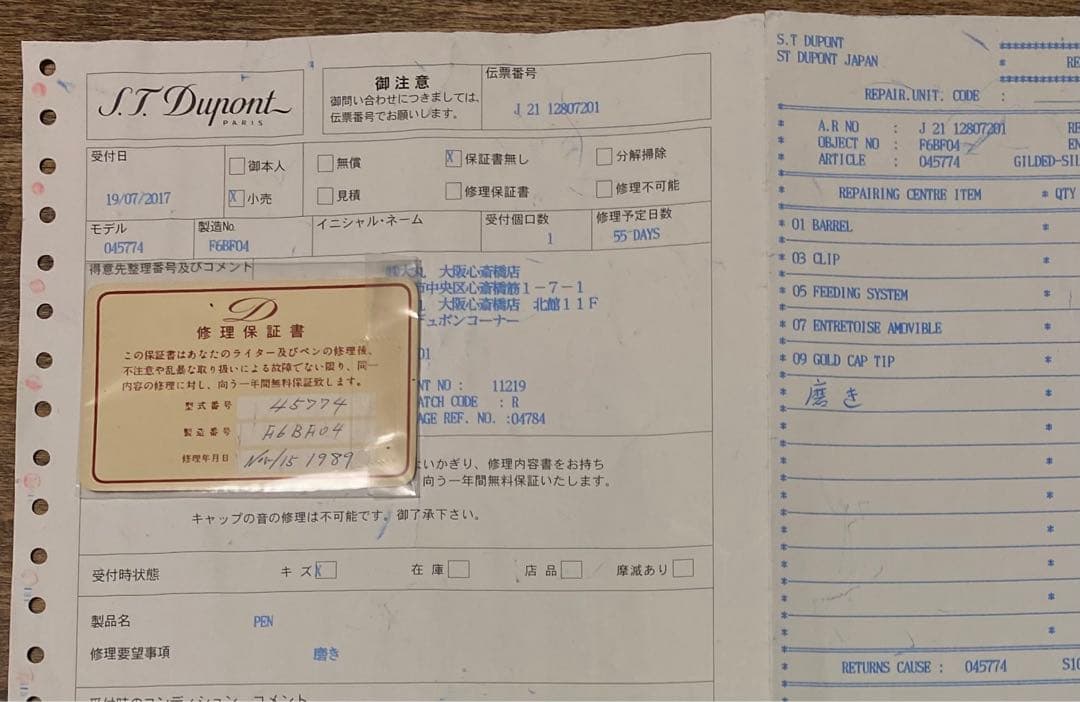 S.T. Dupont
PARIS
御注意
御問い合わせにつきましては、
伝票番号でお願いします。
伝票番号
J 21 12807201
受付日
19/07/2017
御本人
X 小売
無償
見積
X 保証書無し
修理保証書
分解掃除
修理不可能
モデル
045774
製造No.
F6BF04
イニシャル・ネーム
受付個口数
1
修理予定日数
55 DAYS
得意先整理番号及びコメント
大丸 大阪心斎橋店
市中央区心斎橋筋1-7-1
大阪心斎橋店 北館11F
デュポンコーナー
01
NT NO : 11219
ATCH CODE : R
AGE REF. NO. :04784
D
修理保証書
この保証書はあなたのライター及びペンの修理後、
不注意や乱暴な取り扱いによる故障でない限り、同一
内容の修理に対し、向う一年間無料保証致します。
型式番号 45774
製造番号 F6BF04
修理年月日 Nov/15 1989
いかぎり、修理内容書をお持ち
向う一年間無料保証いたします。
キャップの音の修理は不可能です。御了承下さい。
受付時状態 キズ X 在庫 店品 摩滅あり
製品名 PEN
修理要望事項 磨き
受付時のコンディション、コメント
S.T DUPONT
ST DUPONT JAPAN
***************
* RE
***************
REPAIR.UNIT. CODE :
* A.R NO : J 21 12807201 RE
* OBJECT NO : F6BF04 EN
* ARTICLE : 045774 GILDED-SIL
* REPAIRING CENTRE ITEM * QTY
* 01 BARREL *
* 03 CLIP *
* 05 FEEDING SYSTEM *
* 07 ENTRETOISE AMOVIBLE *
* 09 GOLD CAP TIP *
* 磨き *
* RETURNS CAUSE : 045774 S10